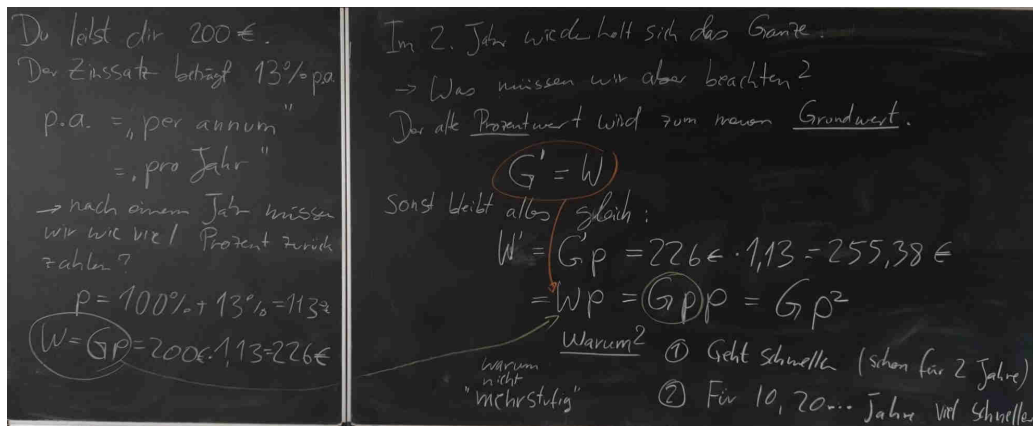 Du leihst dir 200 €.
Der Zinssatz beträgt 13% p.a.
p.a. = „per annum"
= „pro Jahr"
→ nach einem Jahr müssen
wir wie viel Prozent zurück
zahlen?
p = 100% + 13% = 113%
W = Gp = 200€ · 1,13 = 226€
Im 2. Jahr wiederholt sich das Ganze.
→ Was müssen wir aber beachten?
Der alte Prozentwert wird zum neuen Grundwert.
G' = W
Sonst bleibt alles gleich:
W' = G'p = 226€ · 1,13 = 255,38 €
= Wp = Gpp = Gp²
Warum?
warum
nicht
"mehrstufig"
① Geht schneller (schon für 2 Jahre)
② Für 10, 20... Jahre viel schneller